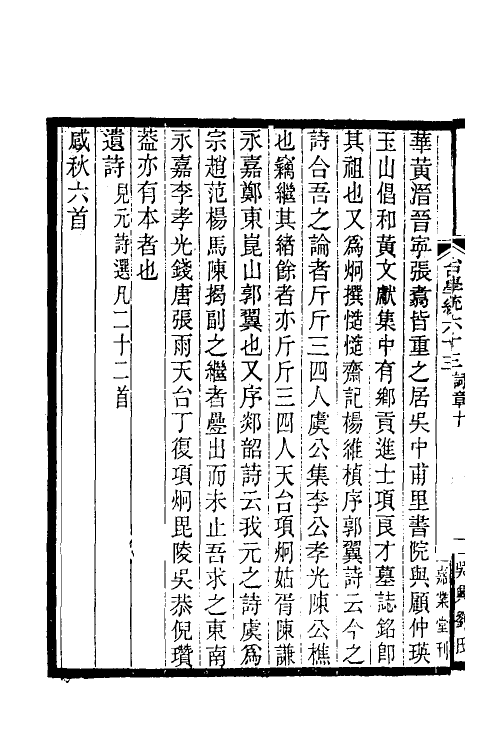 台學統六十三 詞章十
嘉業堂刊
華黃溍晉寧張翥皆重之居吳中甫里書院與顧仲瑛
玉山倡和黃文獻集中有鄉貢進士項良才墓誌銘卽
其祖也又爲炯撰慥慥齋記楊維楨序郭翼詩云今之
詩合吾之論者斤斤三四人虞公集李公孝光陳公樵
也竊繼其緒餘者亦斤斤三四人天台項炯姑胥陳謙
永嘉鄭東崑山郭翼也又序郯韶詩云我元之詩虞爲
宗趙范楊馬陳揭副之繼者疊出而未止吾求之東南
永嘉李孝光錢唐張雨天台丁復項炯毘陵吳恭倪瓚
葢亦有本者也
遺詩 見元詩選凡二十二首
感秋六首